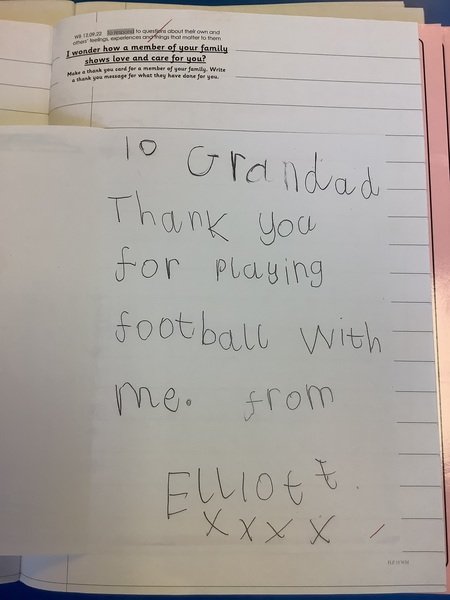 WB 12.09.22 to respond to questions about their own and
others' feelings, experiences and things that matter to them
I wonder how a member of your family
shows love and care for you?
Make a thank you card for a member of your family. Write
a thank you message for what they have done for you.
To Grandad
Thank you
for playing
football with
me. from
Elliott.
x x x x